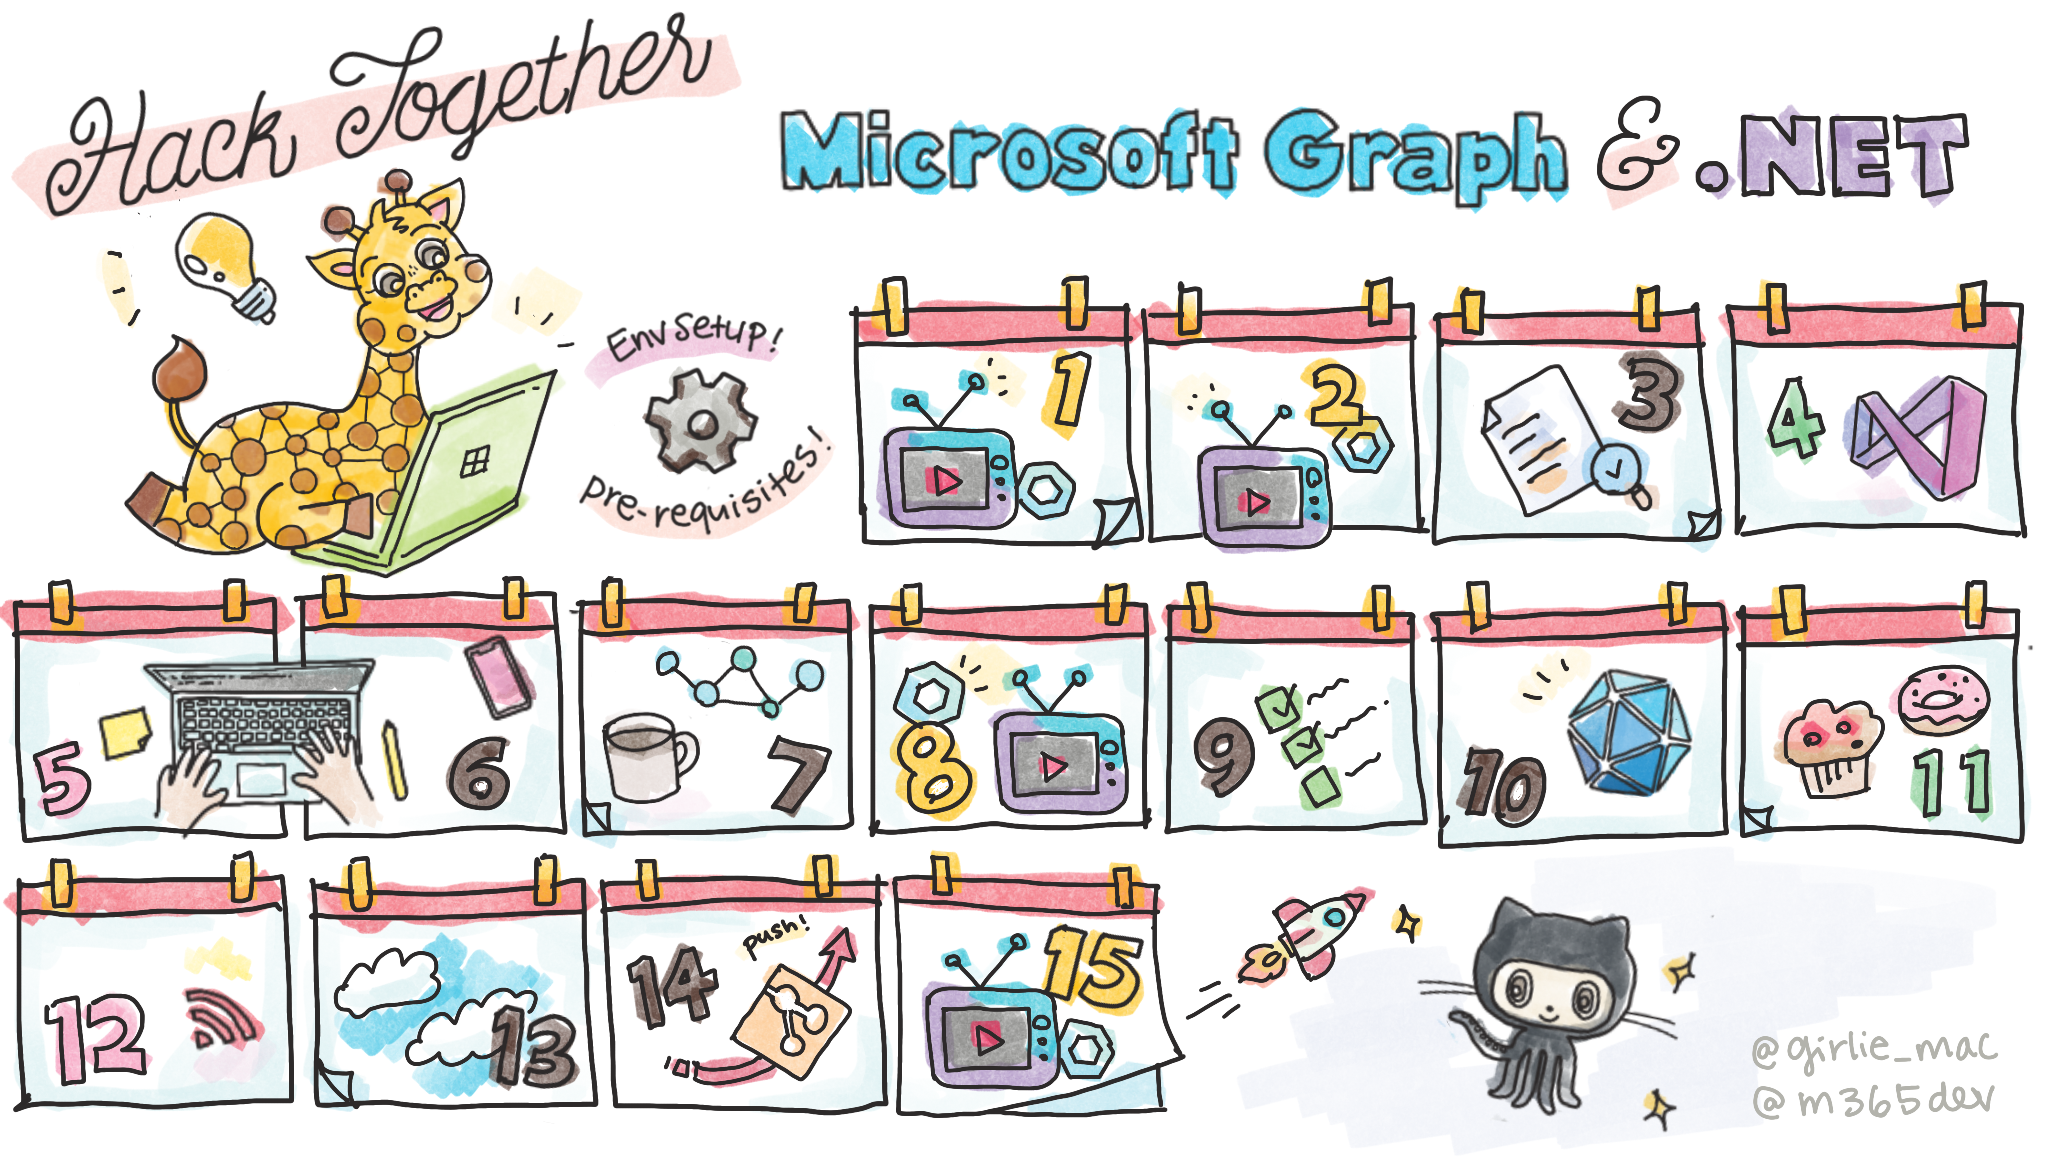 Hack Together
Microsoft Graph & .NET
Env Setup!
pre-requisites!
1
2
3
4
5
6
7
8
9
10
11
12
13
14
push!
15
@girlie_mac
@m365dev